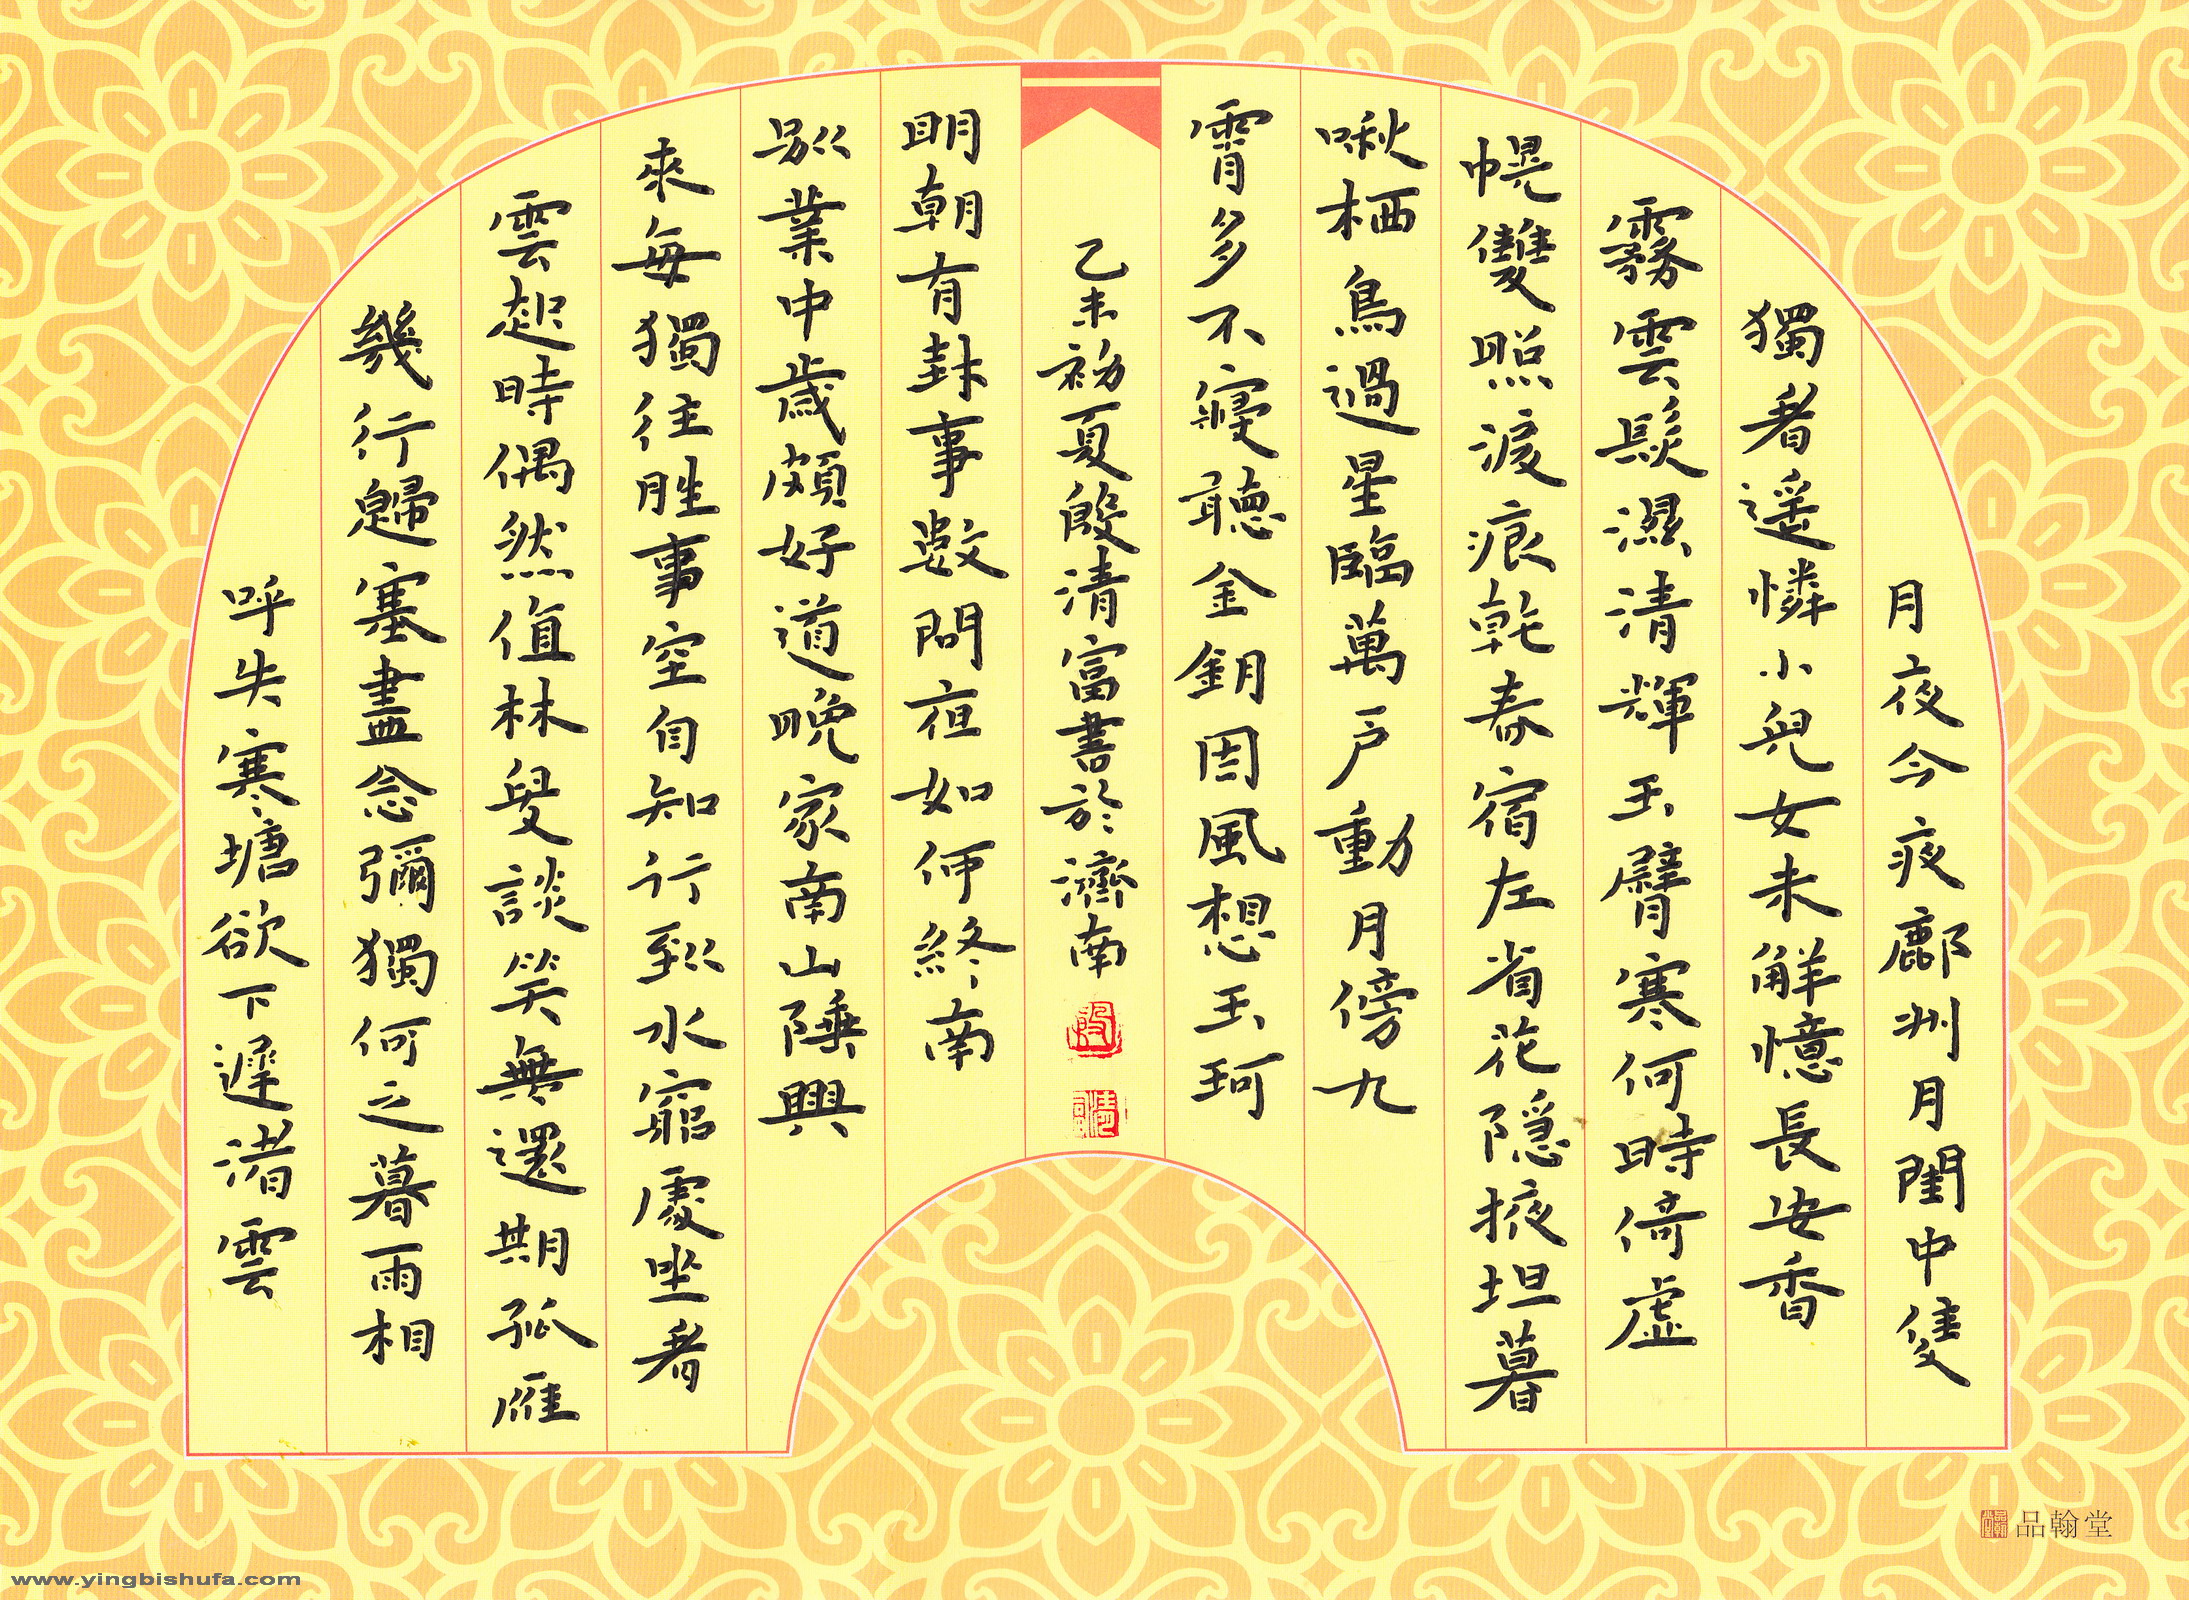 月夜今夜鄜州月閨中隻
獨看遥憐小兒女未解憶長安香
霧雲鬟濕清輝玉臂寒何時倚虛
幌雙照淚痕乾春宿左省花隱掖垣暮
啾栖鳥過星臨萬戶動月傍九
霄多不寢聽金鈅因風想玉珂
乙未初夏殷清富書於濟南
明朝有封事數問夜如何終南
別業中歲頗好道晚家南山陲興
來每獨往胜事空自知行到水窮處坐看
雲起時偶然值林叟談笑無還期孤雁
幾行歸塞盡念彌獨何之暮雨相
呼失寒塘欲下遲渚雲
品翰堂
www.yingbishufa.com